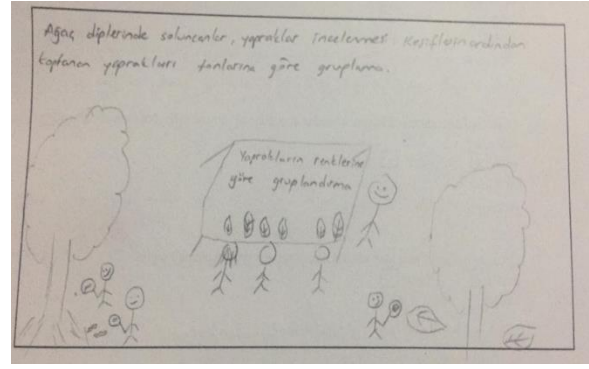 Ağaç diplerinde solucanlar, yapraklar incelenmesi. Keşiflerin ardından
toplanan yaprakları tonlarına göre gruplama.
Yaprakların renklerine
göre gruplandırma